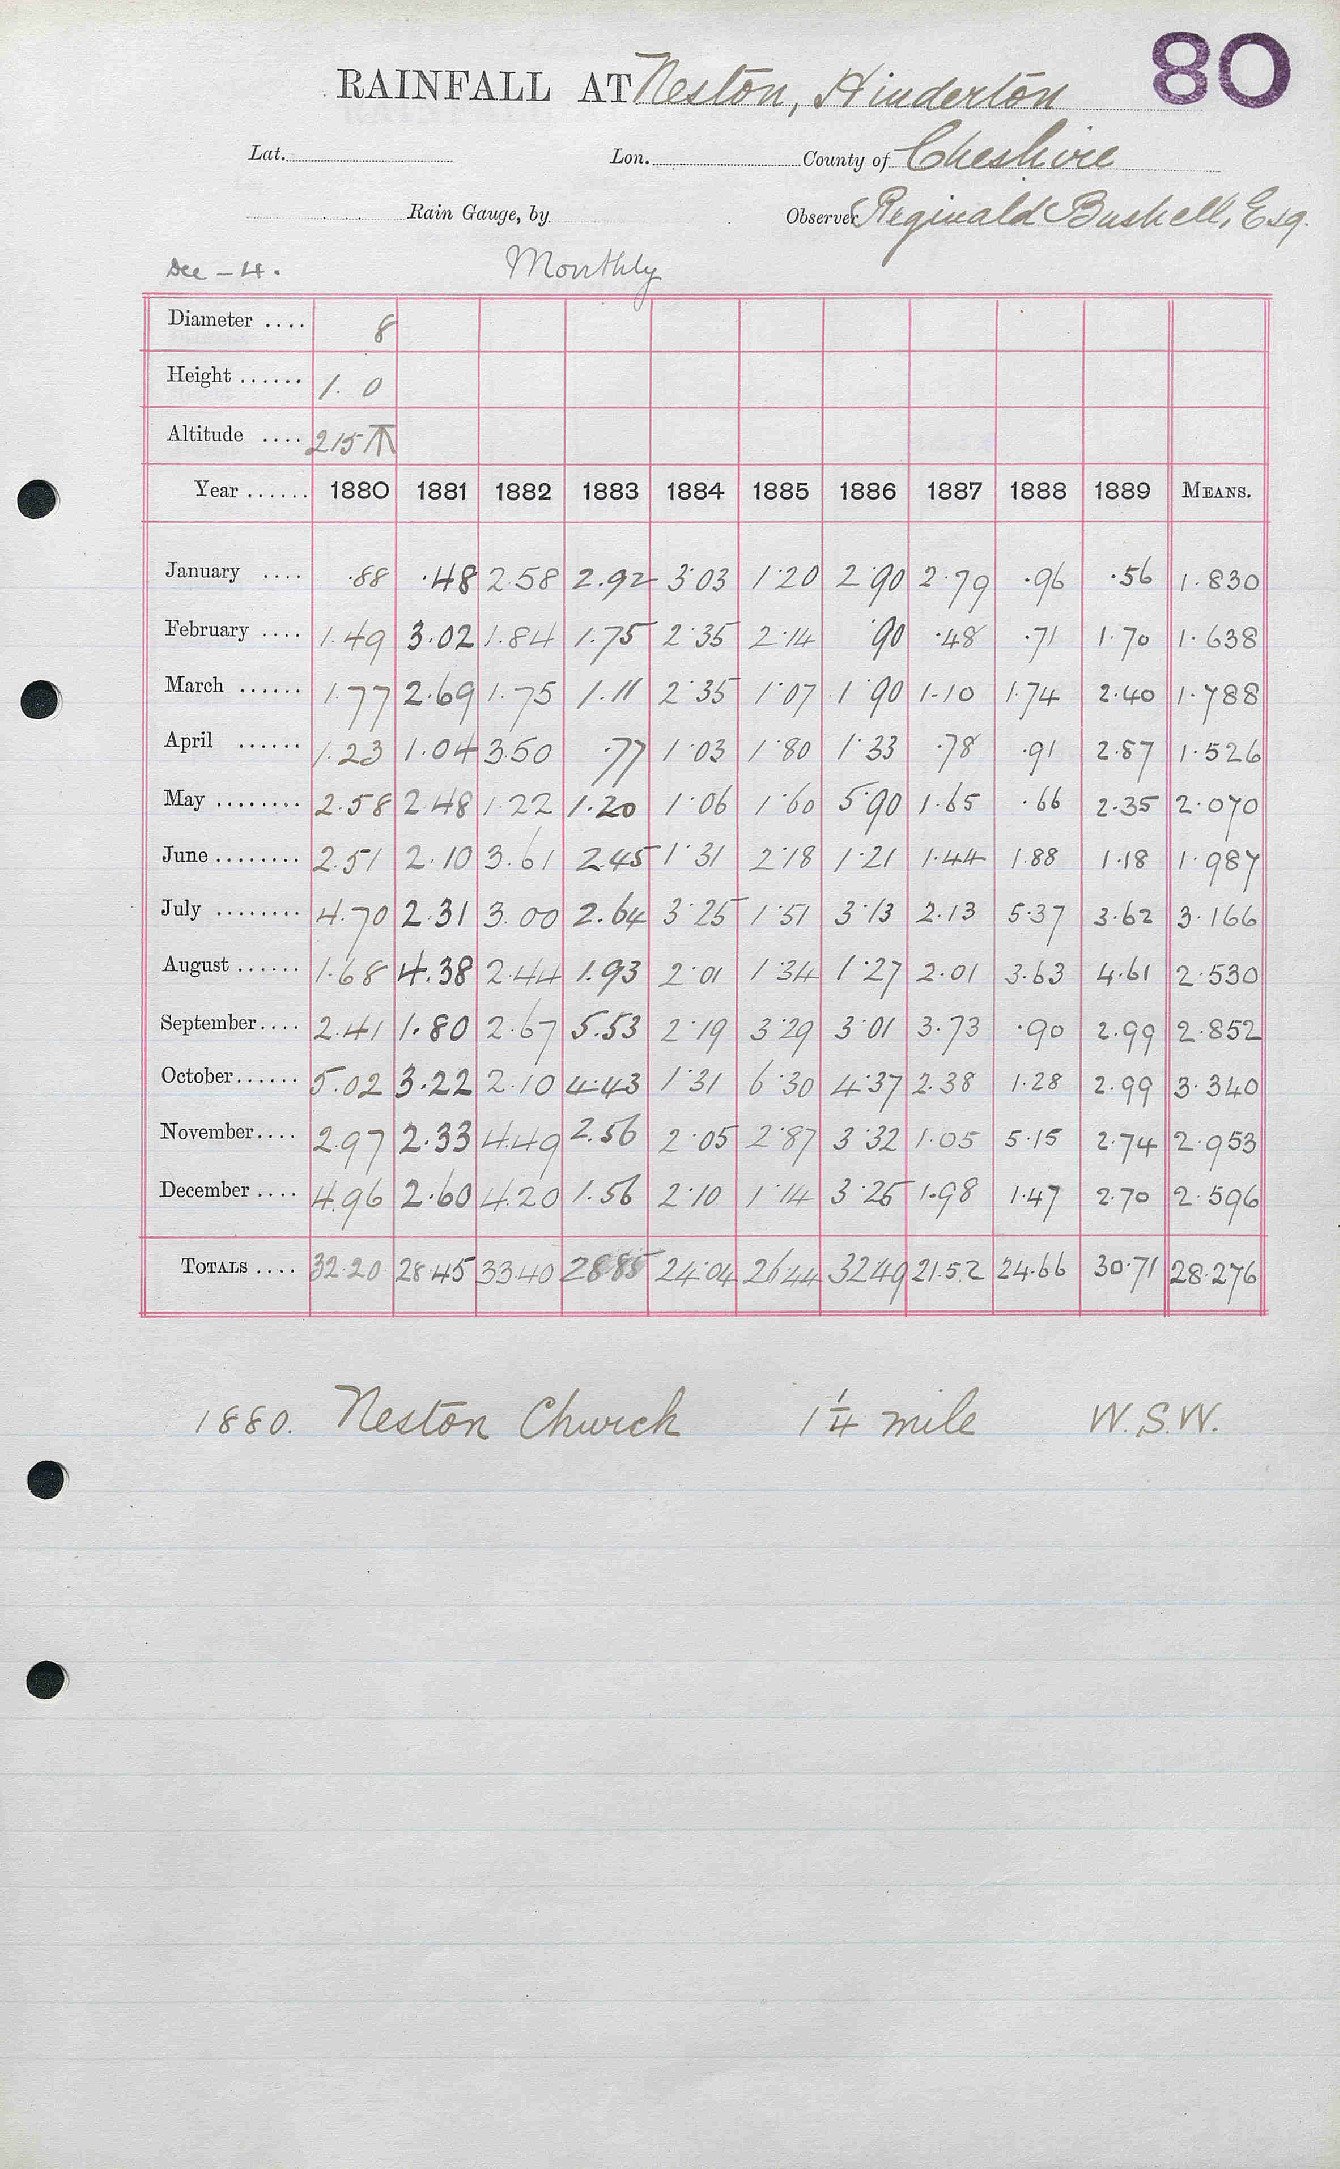 80
RAINFALL AT Neston, Hinderton
Lat. Lon. County of Cheshire
Rain Gauge, by Observer Reginald Bushell, Esq.
Dec - 4. Monthly
Diameter .... 8
Height ...... 1. 0
Altitude .... 215
Year ...... 1880 1881 1882 1883 1884 1885 1886 1887 1888 1889 MEANS.
January .... .88 .48 2.58 2.92 3.03 1.20 2.90 2.79 .96 .56 1.830
February .... 1.49 3.02 1.84 1.75 2.35 2.14 .90 .48 .71 1.70 1.638
March ...... 1.77 2.69 1.75 1.11 2.35 1.07 1.90 1.10 1.74 2.40 1.788
April ...... 1.23 1.04 3.50 .77 1.03 1.80 1.33 .78 .91 2.87 1.526
May ........ 2.58 2.48 1.22 1.20 1.06 1.60 5.90 1.65 .66 2.35 2.070
June ........ 2.51 2.10 3.61 2.45 1.31 2.18 1.21 1.44 1.88 1.18 1.987
July ........ 4.70 2.31 3.00 2.64 3.25 1.51 3.13 2.13 5.37 3.62 3.166
August ...... 1.68 4.38 2.44 1.93 2.01 1.34 1.27 2.01 3.63 4.61 2.530
September.... 2.41 1.80 2.67 5.53 2.19 3.29 3.01 3.73 .90 2.99 2.852
October...... 5.02 3.22 2.10 4.43 1.31 6.30 4.37 2.38 1.28 2.99 3.340
November.... 2.97 2.33 4.49 2.56 2.05 2.87 3.32 1.05 5.15 2.74 2.953
December .... 4.96 2.60 4.20 1.56 2.10 1.14 3.25 1.98 1.47 2.70 2.596
TOTALS .... 32.20 28.45 33.40 28.85 24.04 26.44 32.49 21.52 24.66 30.71 28.276
1880. Neston Church 1¼ mile W.S.W.